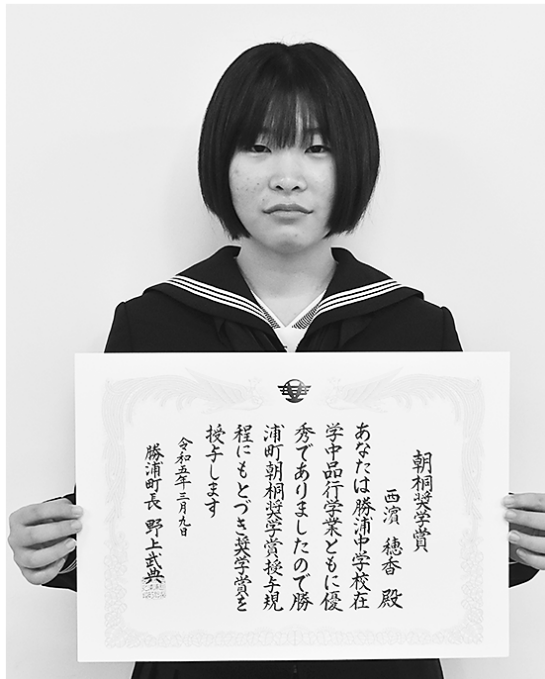 朝桐奨学賞
西濱 穂香 殿
あなたは勝浦中学校在
学中品行学業ともに優
秀でありましたので勝
浦町朝桐奨学賞授与規
程にもとづき奨学賞を
授与します
令和五年三月九日
勝浦町長 野上武典